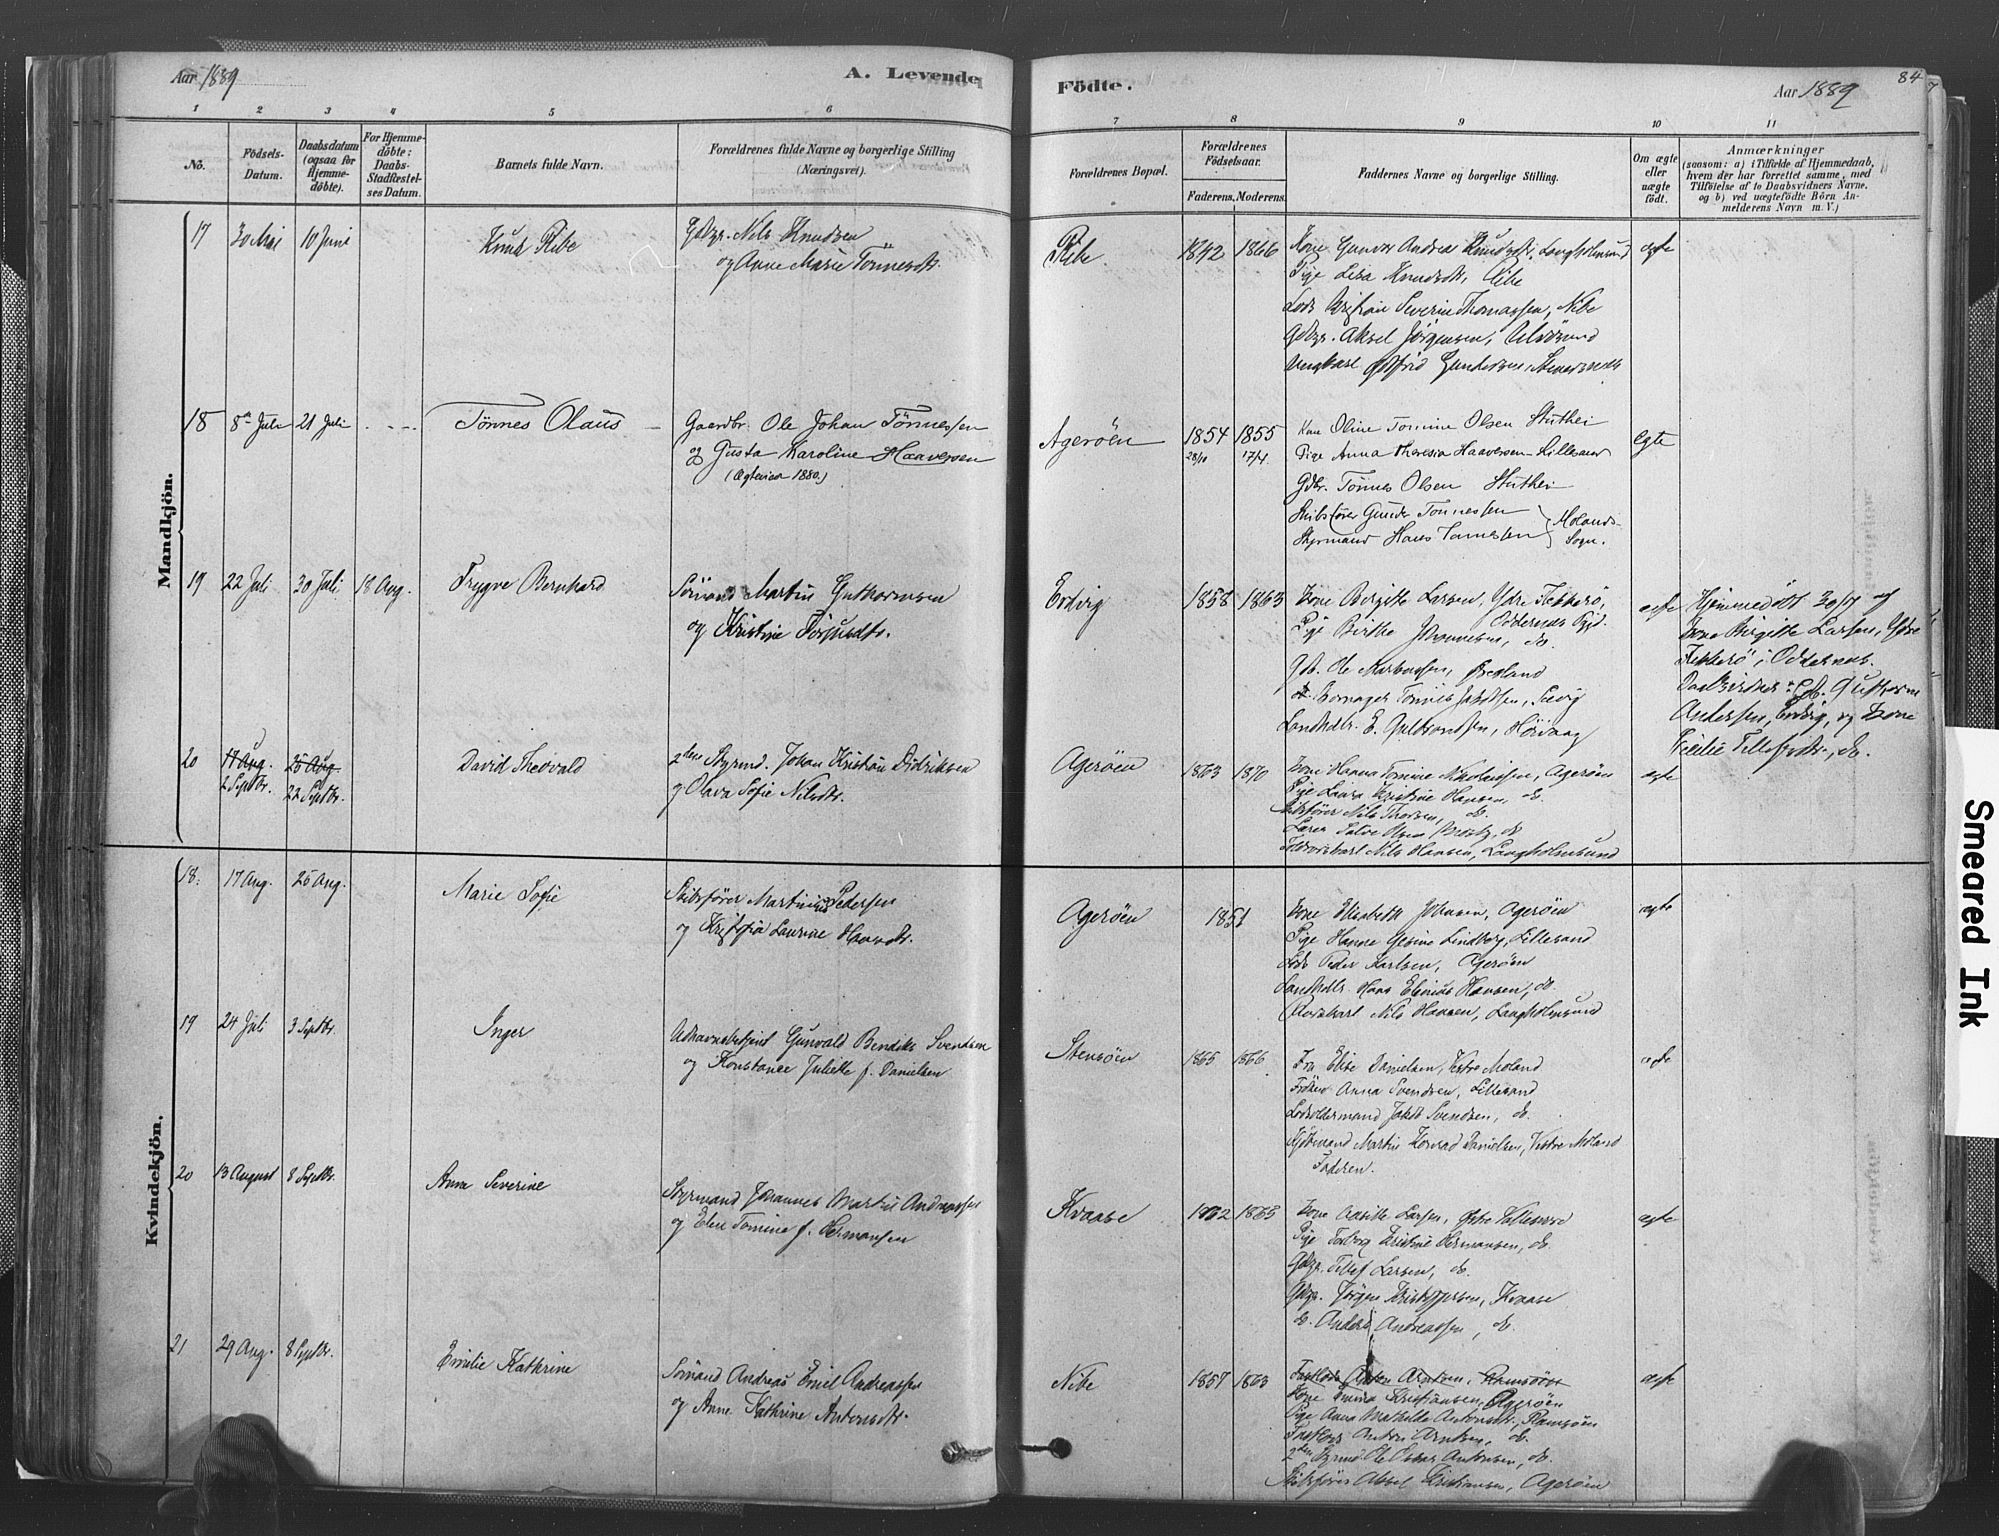 Aar 1889
A. Levende
Födte.
Aar 1889
84
1 2 3 4 5 6 7 8 9 10 11
No.
Födsels-
Datum.
Daabsdatum
(ogsaa for
Hjemme-
döbte).
For Hjemme-
döbte:
Daabs-
Stadfæstel-
ses Datum.
Barnets fulde Navn.
Forældrenes fulde Navne og borgerlige Stilling
(Næringsvei).
Forældrenes Bopæl.
Forældrenes
Födselsaar.
Faderens. Moderens.
Faddernes Navne og borgerlige Stilling.
Om ægte
eller
uægte
födt.
Anmærkninger
(saasom: a) i Tilfælde af Hjemmedaab,
hvem der har forrettet samme, med
Tilföielse af to Daabsvidners Navne.
og b) ved uægtefödte Börn An-
melderens Navn m. V.)
Mandkjön.
17 30 Mai 10 Juni Knud Ribe Gdbgr. Nils Knudsen
og Anne Marie Tönnesdtr.
Ribe 1842 1866 Kone Gunvor Andrea Knudsdtr., Langholmsund ægte
Pige Lisa Knudsdtr., Ribe
Lods Kristian Severin Thomassen, Nibe
Gdbgr. Aksel Jörgensen, Ulvösund
Ungkarl Gotfrid Gundersen,
18 8de Juli 21 Juli Tönnes Olaus Gaardbr. Ole Johan Tönnessen
og Gusta Karoline Haaversen
(Ægteviet 1880.)
Ageröen 1854 1855 Kone Oline Tomine Olsen Stuthei Egte
28/10 17/4 Pige Anna Theresia Haaversen Lillesand
Gdbr. Tönnes Olsen Stuthei
Skibsförer Gunder Tönnessen
Styrmand Hans Tönnessen
Molands-
Sogn.
19 22 Juli 30 Juli 18 Aug. Trygve Bernhard Sömand Martin Guthormsen
og Kristine Torjusdtr.
Eidvig 1858 1863 Kone Birgitte Larsen, Ydre Flekkerö, ægte
Oddernes Pgjd.
Pige Birthe Johannesen, do.
Gdb. Ole Markussen, Övreland
Tönnes Jakobsen,
Landhdlr. E. Guldbrandsen, Hövaag
Hjemmedöbt 30/7 af
Kone Birgitte Larsen, Ydre
Flekkerö i Oddernes.
Daabsvidner: Gb. Guthorm
Andersen, Eidvig, og Kone
Cecilie Tellefsdtr., do.
20 17 Aug. 25 Aug. David Theovald 2den Styrmd. Johan Kristian Didriksen
2 Septbr. 22 Septbr. og Olava Sofie Nilsdtr.
Ageröen 1863 1870 Kone Hanna Tomine Nikolaisen, Ageröen ægte
Pige Laura Kristine Hansen, do.
Skibsförer Nils Thorsen, do.
Lærer Salve Olsen Mosby, do.
Toldrorskarl Nils Hansen, Langholmsund
Kvindekjön.
18. 17 Aug. 25 Aug. Marie Sofie Skibsförer Martinius Pedersen
og Kristofia Laurine Haavdtr.
Ageröen 1851 Kone Elisabeth Johnsen, Ageröen ægte
Pige Hanne Gesine Lindberg, Lillesand
Lods Peder Karlsen, Ageröen
Landhdlr. Hans Elenius Hansen, do.
Rorskarl Nils Hansen, Langholmsund
19 24 Juli 3 Septbr. Inger Udhavnsbetjent Gunvald Bendiks Svendsen
og Konstance Juliette f. Danielsen
Stensöen 1865 1866 Fru Elise Danielsen, Vestre Moland ægte
Fröken Anna Svendsen, Lillesand
Lodsoldermand Jakob Svendsen, do.
Kjöbmand Martin Konrad Danielsen, Vestre Moland
Faderen.
20 13 August 8 Septbr. Anna Severine Styrmand Johannes Martin Andreassen
og Elen Tomine f. Hermansen
Kvaase 1862 1865 Kone Aasille Larsen, Östre Vallesværd ægte
Pige Torborg Kristine Hermansen, do.
Gdbgr. Tellef Larsen, do.
Gdbgr. Jörgen Kristoffersen, Kvaase
do. Anders Andreassen, do.
21 29 Aug. 8 Septbr. Emilie Kathrine Sömand Andreas Emil Andreassen
og Anne Kathrine Antonsdtr.
Nibe 1857 1863 Fastlods Anton Arntsen, Ramsöen ægte
Kone Tomine Kristiansen, Ageröen
Pige Anna Mathilde Antonsdtr., Ramsöen
Fastlods Anton Arntsen, do.
2den Styrmd. Ole Oskar Antonsen, do.
Skibsförer Aksel Kristiansen, Ageröen
Smeared Ink